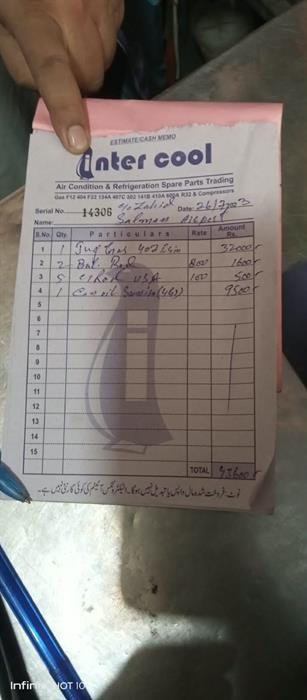 ESTIMATE/CASH MEMO
inter cool
Air Condition & Refrigeration Spare Parts Trading
Gas F12 404 F22 134A 407C 502 141B 410A 600A R32 & Compressors
Serial No. 14306 Date: 26/7/2023
Name: Salman
S.No. Qty. Particulars Rate Amount Rs.
1 1 32000
2 2 Rod 800 1600
3 5 Rod USA 100 500
4 1 9500
5
6
7
8
9
10
11
12
13
14
15
TOTAL 43600
نوٹ: فروخت شدہ مال واپس یا تبدیل نہیں ہوگا۔ الیکٹرونکس آئیٹم کی کوئی گارنٹی نہیں ہے۔
Infinix HOT 10